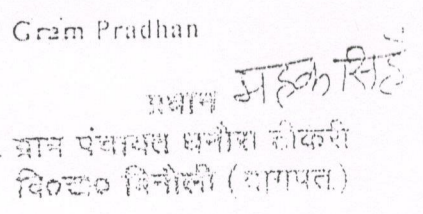 Gram Pradhan
महक सिंह
प्रधान
ग्राम पंचायत धनौरा टीकरी
वि०ख०० बिनौली (बागपत)